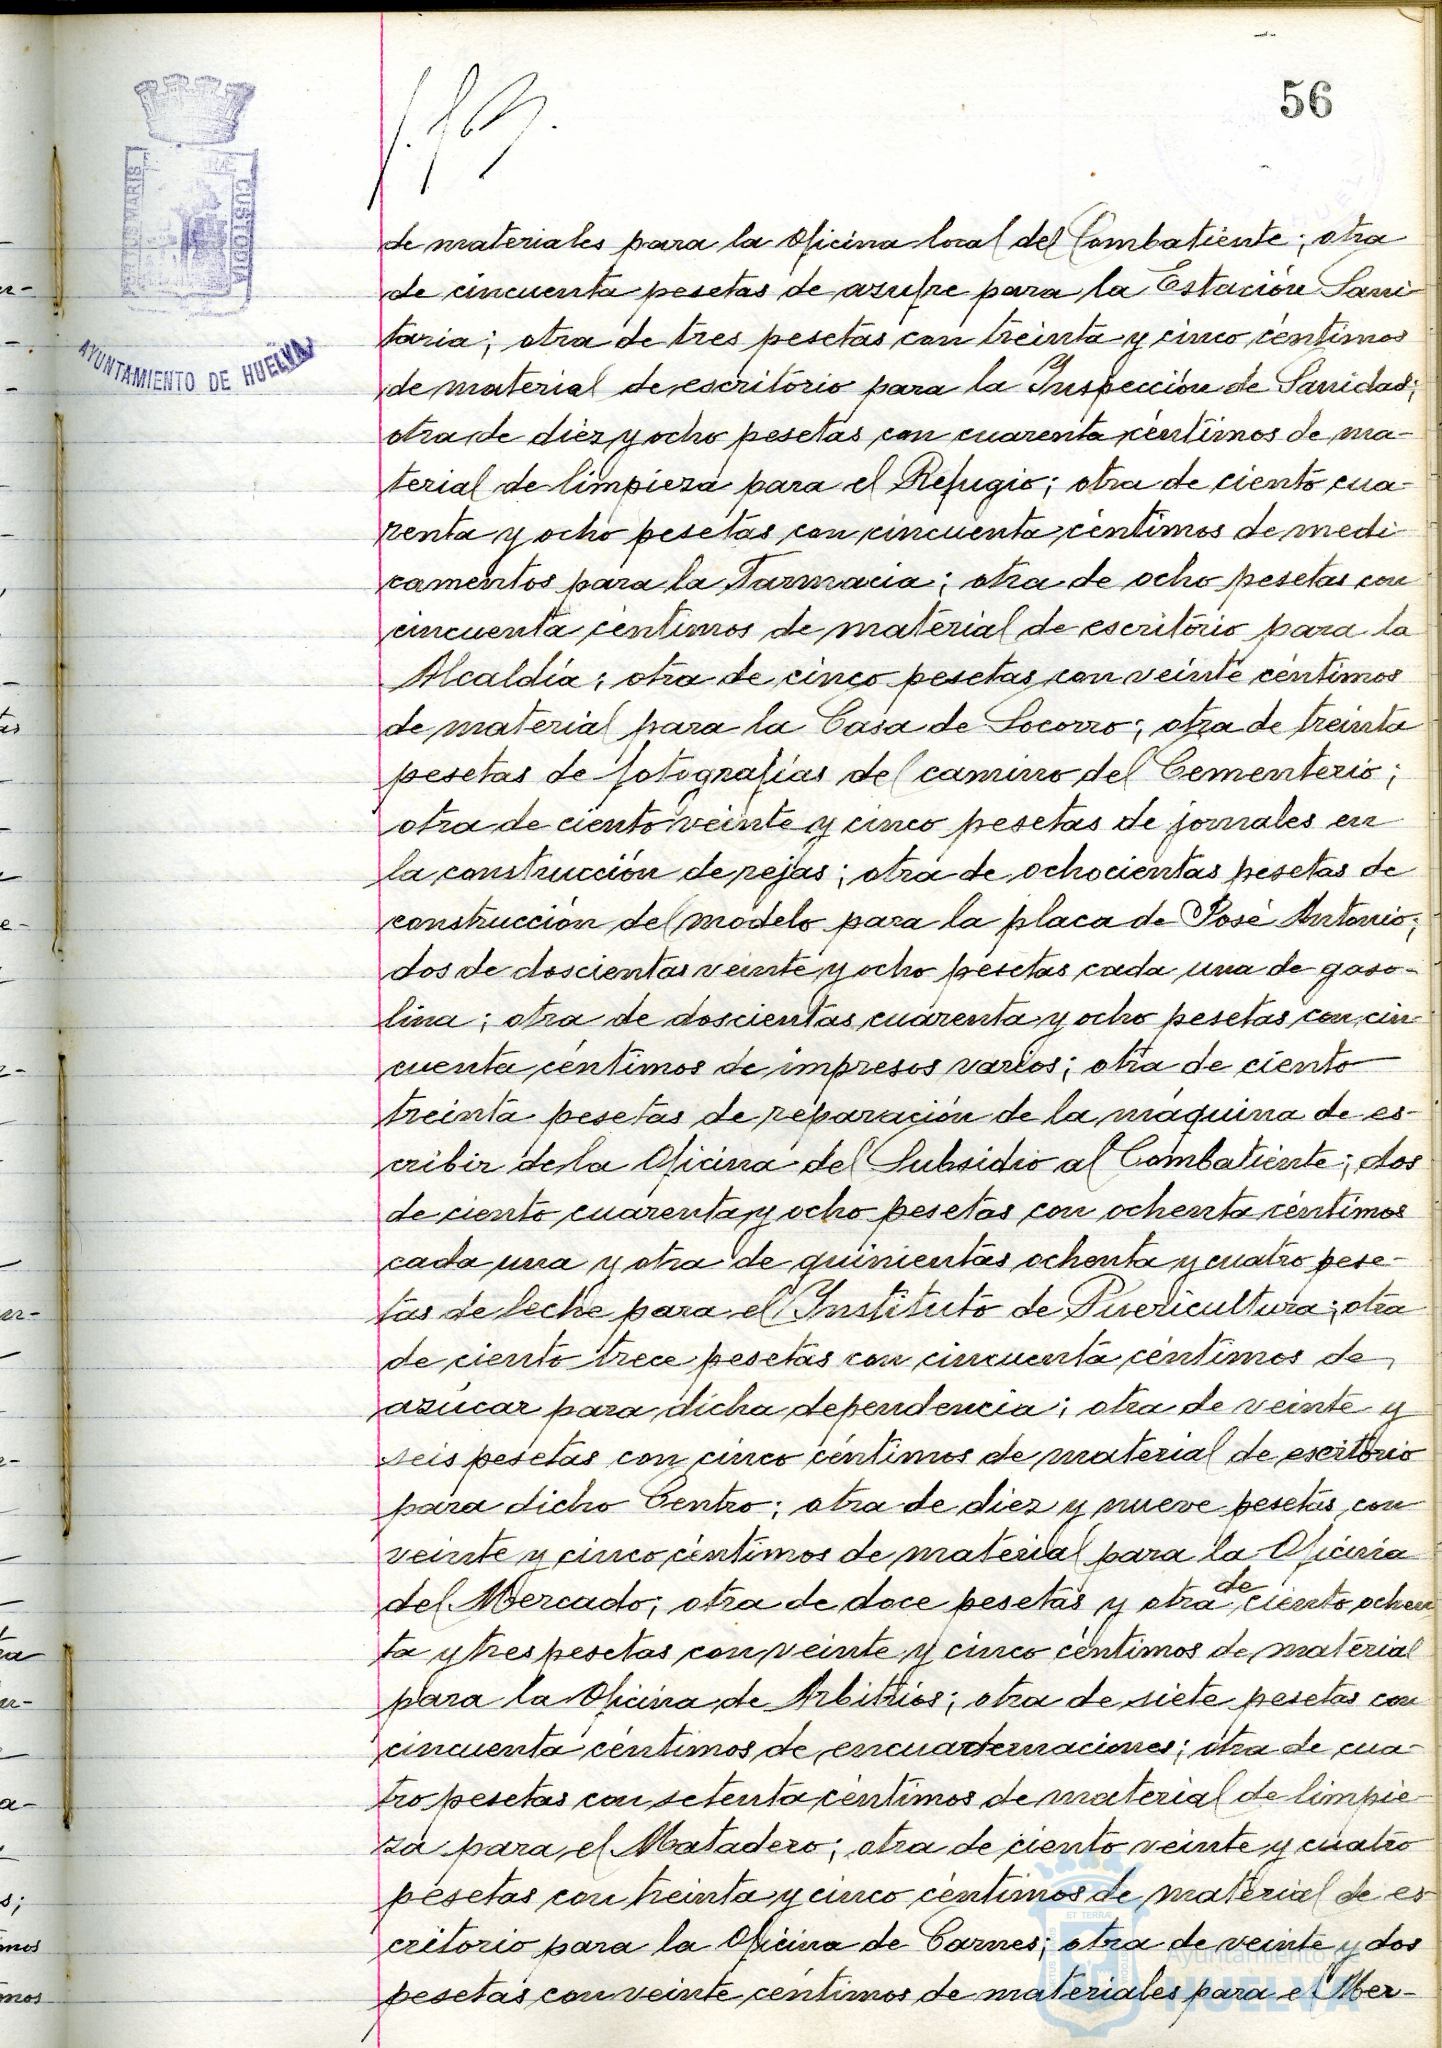 56
PORTUS MARIS
CUSTODIA
AYUNTAMIENTO DE HUELVA
de materiales para la Oficina local del Combatiente; otra
de cincuenta pesetas de azufre para la Estación Sani-
taria; otra de tres pesetas con treinta y cinco céntimos
de material de escritorio para la Inspección de Sanidad;
otra de diez y ocho pesetas con cuarenta céntimos de ma-
terial de limpieza para el Refugio; otra de ciento cua-
renta y ocho pesetas con cincuenta céntimos de medi-
camentos para la Farmacia; otra de ocho pesetas con
cincuenta céntimos de material de escritorio para la
Alcaldía; otra de cinco pesetas con veinte céntimos
de material para la Casa de Socorro; otra de treinta
pesetas de fotografías del camino del Cementerio;
otra de ciento veinte y cinco pesetas de jornales en
la construcción de rejas; otra de ochocientas pesetas de
construcción del modelo para la placa de José Antonio;
dos de doscientas veinte y ocho pesetas cada una de gaso-
lina; otra de doscientas cuarenta y ocho pesetas con cin-
cuenta céntimos de impresos varios; otra de ciento
treinta pesetas de reparación de la máquina de es-
cribir de la Oficina del Subsidio al Combatiente; dos
de ciento cuarenta y ocho pesetas con ochenta céntimos
cada una y otra de quinientas ochenta y cuatro pese-
tas de leche para el Instituto de Puericultura; otra
de ciento trece pesetas con cincuenta céntimos de
azúcar para dicha dependencia; otra de veinte y
seis pesetas con cinco céntimos de material de escritorio
para dicho Centro; otra de diez y nueve pesetas con
veinte y cinco céntimos de material para la Oficina
del Mercado; otra de doce pesetas y otra de ciento ochen
ta y tres pesetas con veinte y cinco céntimos de material
para la Oficina de Arbitrios; otra de siete pesetas con
cincuenta céntimos de encuadernaciones; otra de cua-
tro pesetas con setenta céntimos de material de limpie-
za para el Matadero; otra de ciento veinte y cuatro
pesetas con treinta y cinco céntimos de material de es
critorio para la Oficina de Carnes; otra de veinte y dos
pesetas con veinte céntimos de materiales para el Mer-
Ayuntamiento de
HUELVA